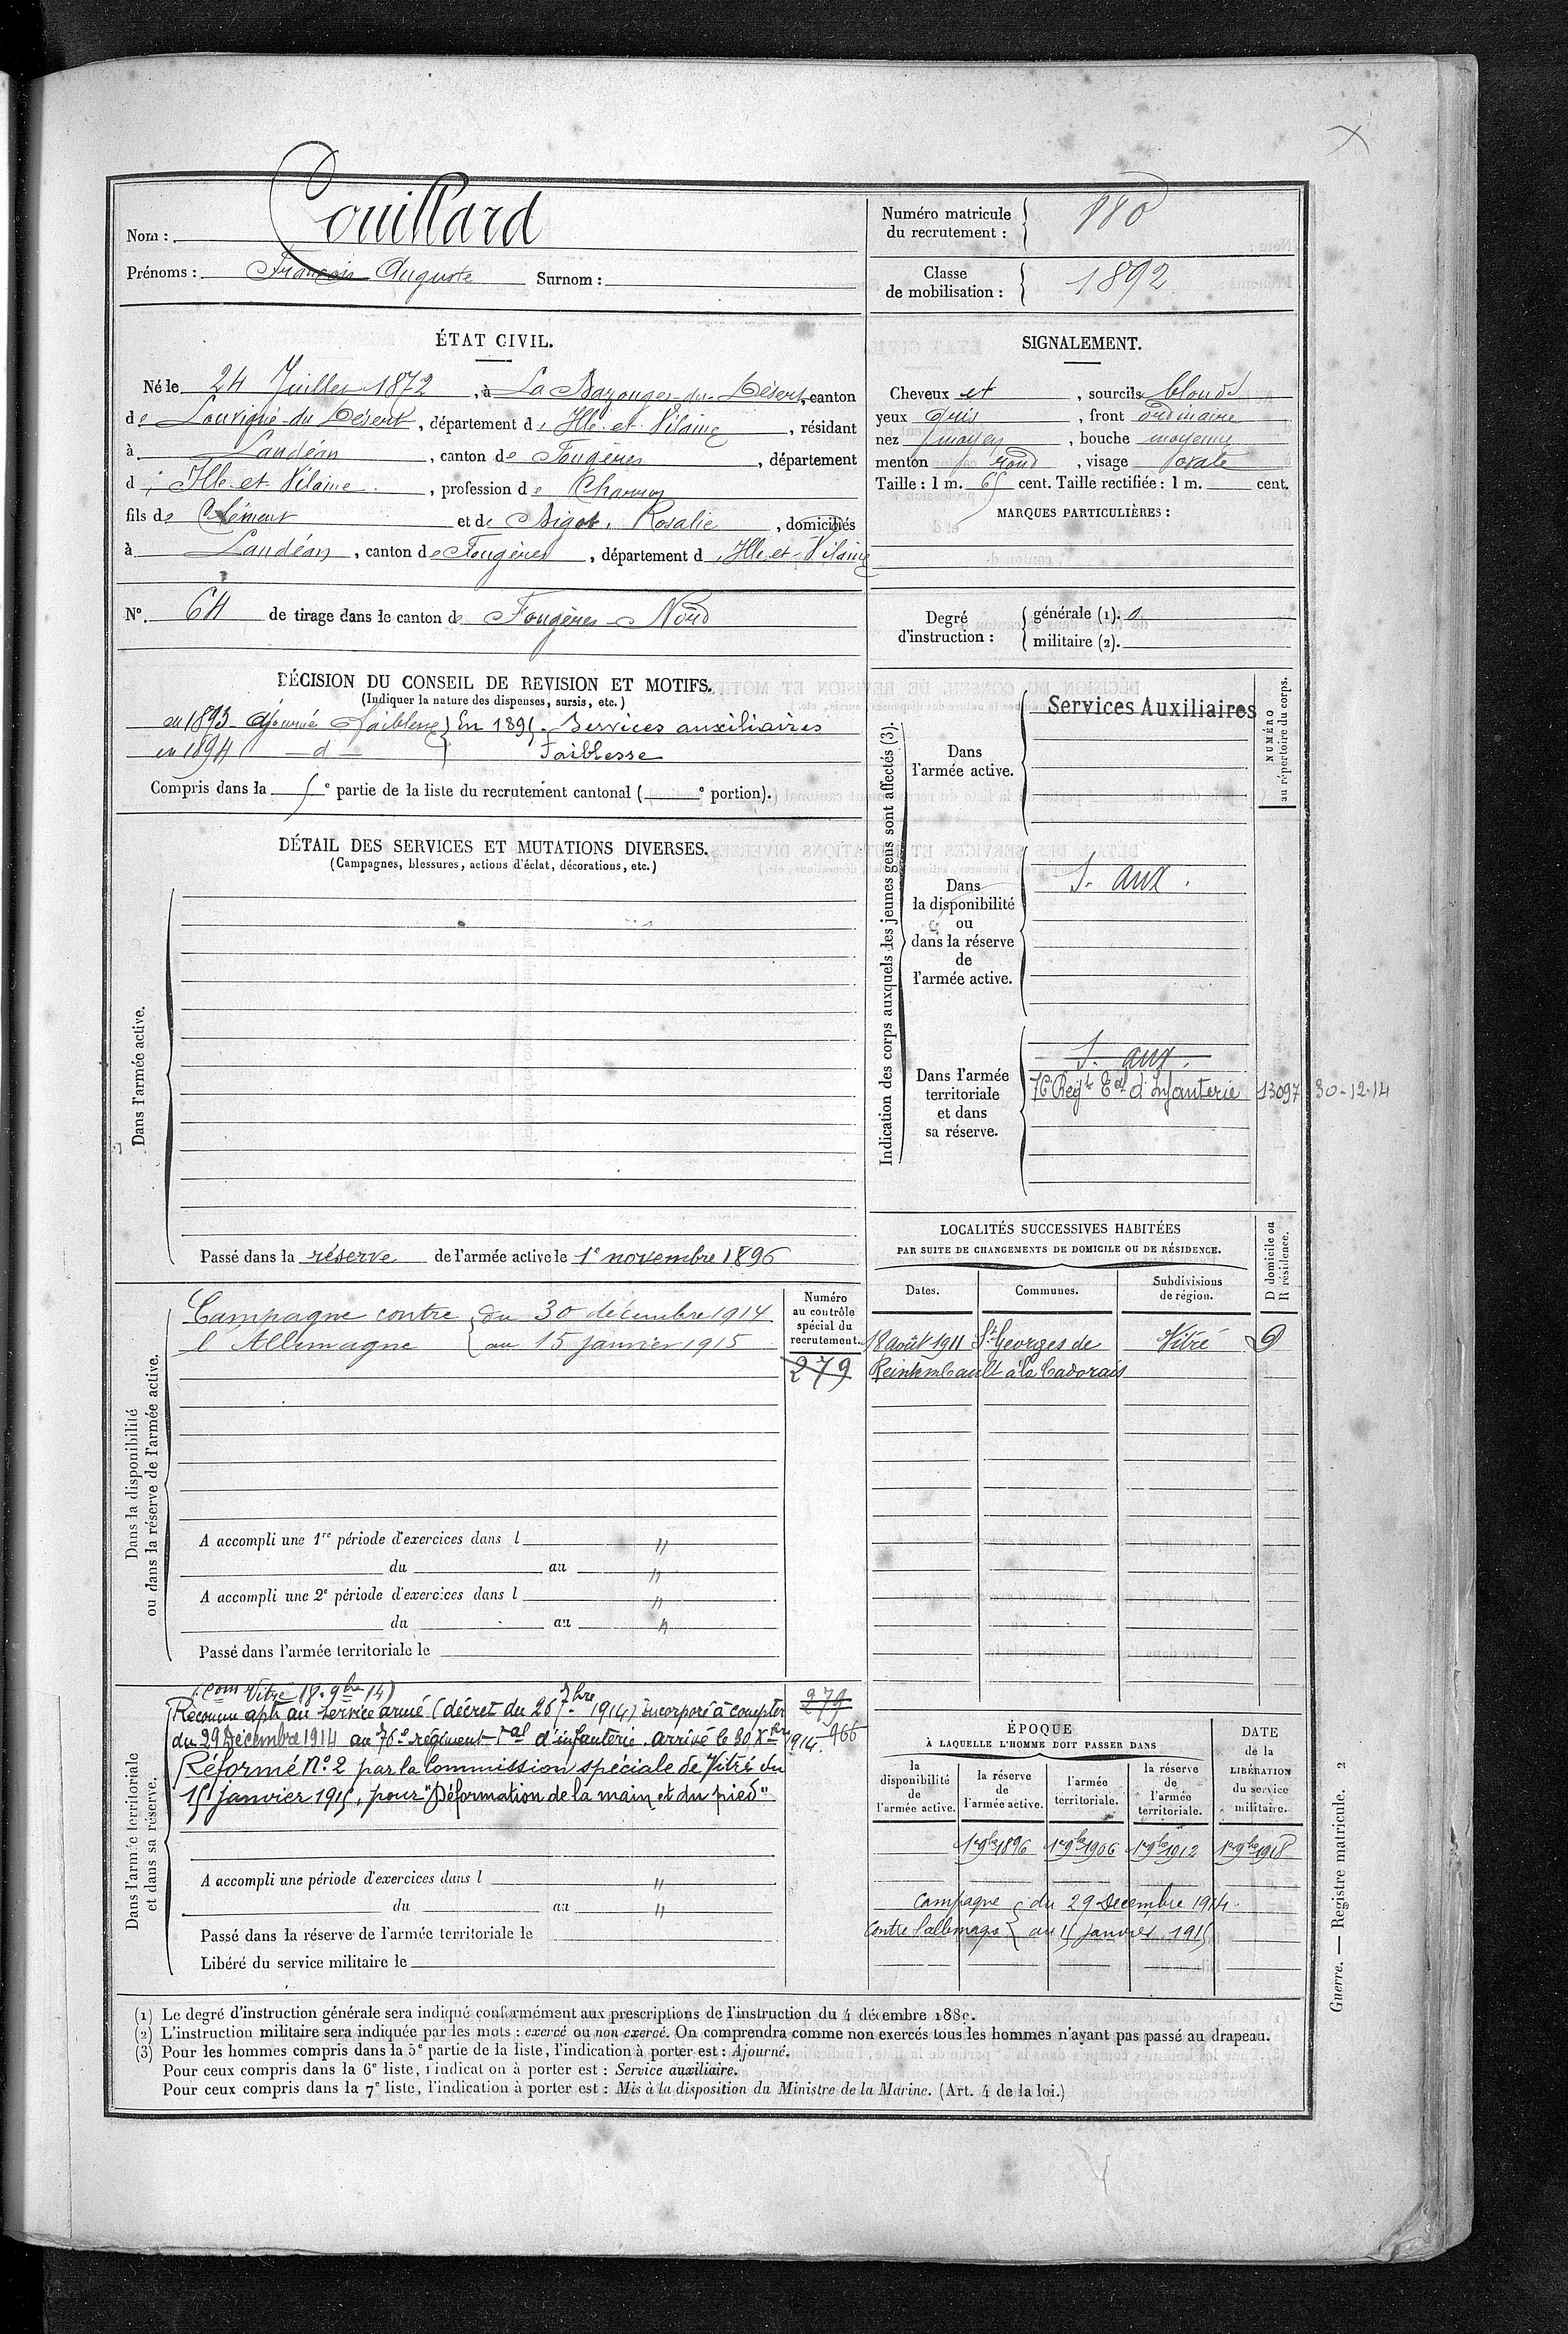 Nom : Couillard
Prénoms : François Auguste Surnom :
Numéro matricule du recrutement : 880
Classe de mobilisation : 1892
ÉTAT CIVIL.
Né le 24 Juillet 1872, à La Bazouges-du-Désert, canton
de Louvigné-du-Désert, département d'Ille-et-Vilaine, résidant
à Landéan, canton de Fougères, département
d'Ille-et-Vilaine, profession de Charron
fils de Clément et de Bigot, Rosalie, domiciliés
à Landéan, canton de Fougères, département d'Ille-et-Vilaine
No. 64 de tirage dans le canton de Fougères-Nord
SIGNALEMENT.
Cheveux et, sourcils blonds
yeux gris, front ordinaire
nez moyen, bouche moyenne
menton rond, visage ovale
Taille : 1 m. 65 cent. Taille rectifiée : 1 m. cent.
MARQUES PARTICULIÈRES :
Degré d'instruction :
générale (1). 0
militaire (2).
DÉCISION DU CONSEIL DE REVISION ET MOTIFS.
(Indiquer la nature des dispenses, sursis, etc.)
en 1893 Ajourné Faiblesse } En 1895. Services auxiliaires
en 1894 — d — } Faiblesse
Compris dans la e partie de la liste du recrutement cantonal ( e portion).
DÉTAIL DES SERVICES ET MUTATIONS DIVERSES.
(Campagnes, blessures, actions d'éclat, décorations, etc.)
Dans l'armée active.
Passé dans la réserve de l'armée active le 1e novembre 1896
Indication des corps auxquels les jeunes gens sont affectés (3).
NUMÉRO
au répertoire du corps.
Dans
l'armée active.
Services Auxiliaires
Dans
la disponibilité
ou
dans la réserve
de
l'armée active.
S. aux.
Dans l'armée
territoriale
et dans
sa réserve.
S. aux.
76 Regt Eal d'Infanterie 13097 30-12-14
LOCALITÉS SUCCESSIVES HABITÉES
PAR SUITE DE CHANGEMENTS DE DOMICILE OU DE RÉSIDENCE.
D domicile ou
R résidence.
Dates. Communes. Subdivisions de région.
18 août 1911 St Georges de Vitré D
Reintembault à la Cadorais
Dans la disponibilité
ou dans la réserve de l'armée active.
Campagne contre { du 30 décembre 1914
l'Allemagne { au 15 janvier 1915
Numéro
au contrôle
spécial du
recrutement.
279
A accompli une 1re période d'exercices dans l "
du au "
A accompli une 2e période d'exercices dans l "
du au "
Passé dans l'armée territoriale le
Dans l'armée territoriale
et dans sa réserve.
(Com Vitré 18. 9bre 14)
Reconnu apte au service armé (décret du 26 7bre 1914) incorporé à compter
du 29 Décembre 1914 au 76e régiment Tal d'infanterie. arrivé le 30 Xbre 1914.
Réformé No. 2 par la Commission spéciale de Vitré du
15 janvier 1915, pour "Déformation de la main et du pied"
279
966
A accompli une période d'exercices dans l "
du au "
Passé dans la réserve de l'armée territoriale le
Libéré du service militaire le
ÉPOQUE
À LAQUELLE L'HOMME DOIT PASSER DANS
la disponibilité de l'armée active.
la réserve de l'armée active.
l'armée territoriale.
la réserve de l'armée territoriale.
DATE de la LIBÉRATION du service militaire.
1er 9bre 1896 1er 9bre 1906 1er 9bre 1912 1er 9bre 1918
Campagne { du 29 Decembre 1914
contre l'allemagne { au 15 janvier 1915
(1) Le degré d'instruction générale sera indiqué conformément aux prescriptions de l'instruction du 4 décembre 1889.
(2) L'instruction militaire sera indiquée par les mots : exercé ou non exercé. On comprendra comme non exercés tous les hommes n'ayant pas passé au drapeau.
(3) Pour les hommes compris dans la 5e partie de la liste, l'indication à porter est : Ajourné.
Pour ceux compris dans la 6e liste, l'indication à porter est : Service auxiliaire.
Pour ceux compris dans la 7e liste, l'indication à porter est : Mis à la disposition du Ministre de la Marine. (Art. 4 de la loi.)
Guerre. — Registre matricule. 2